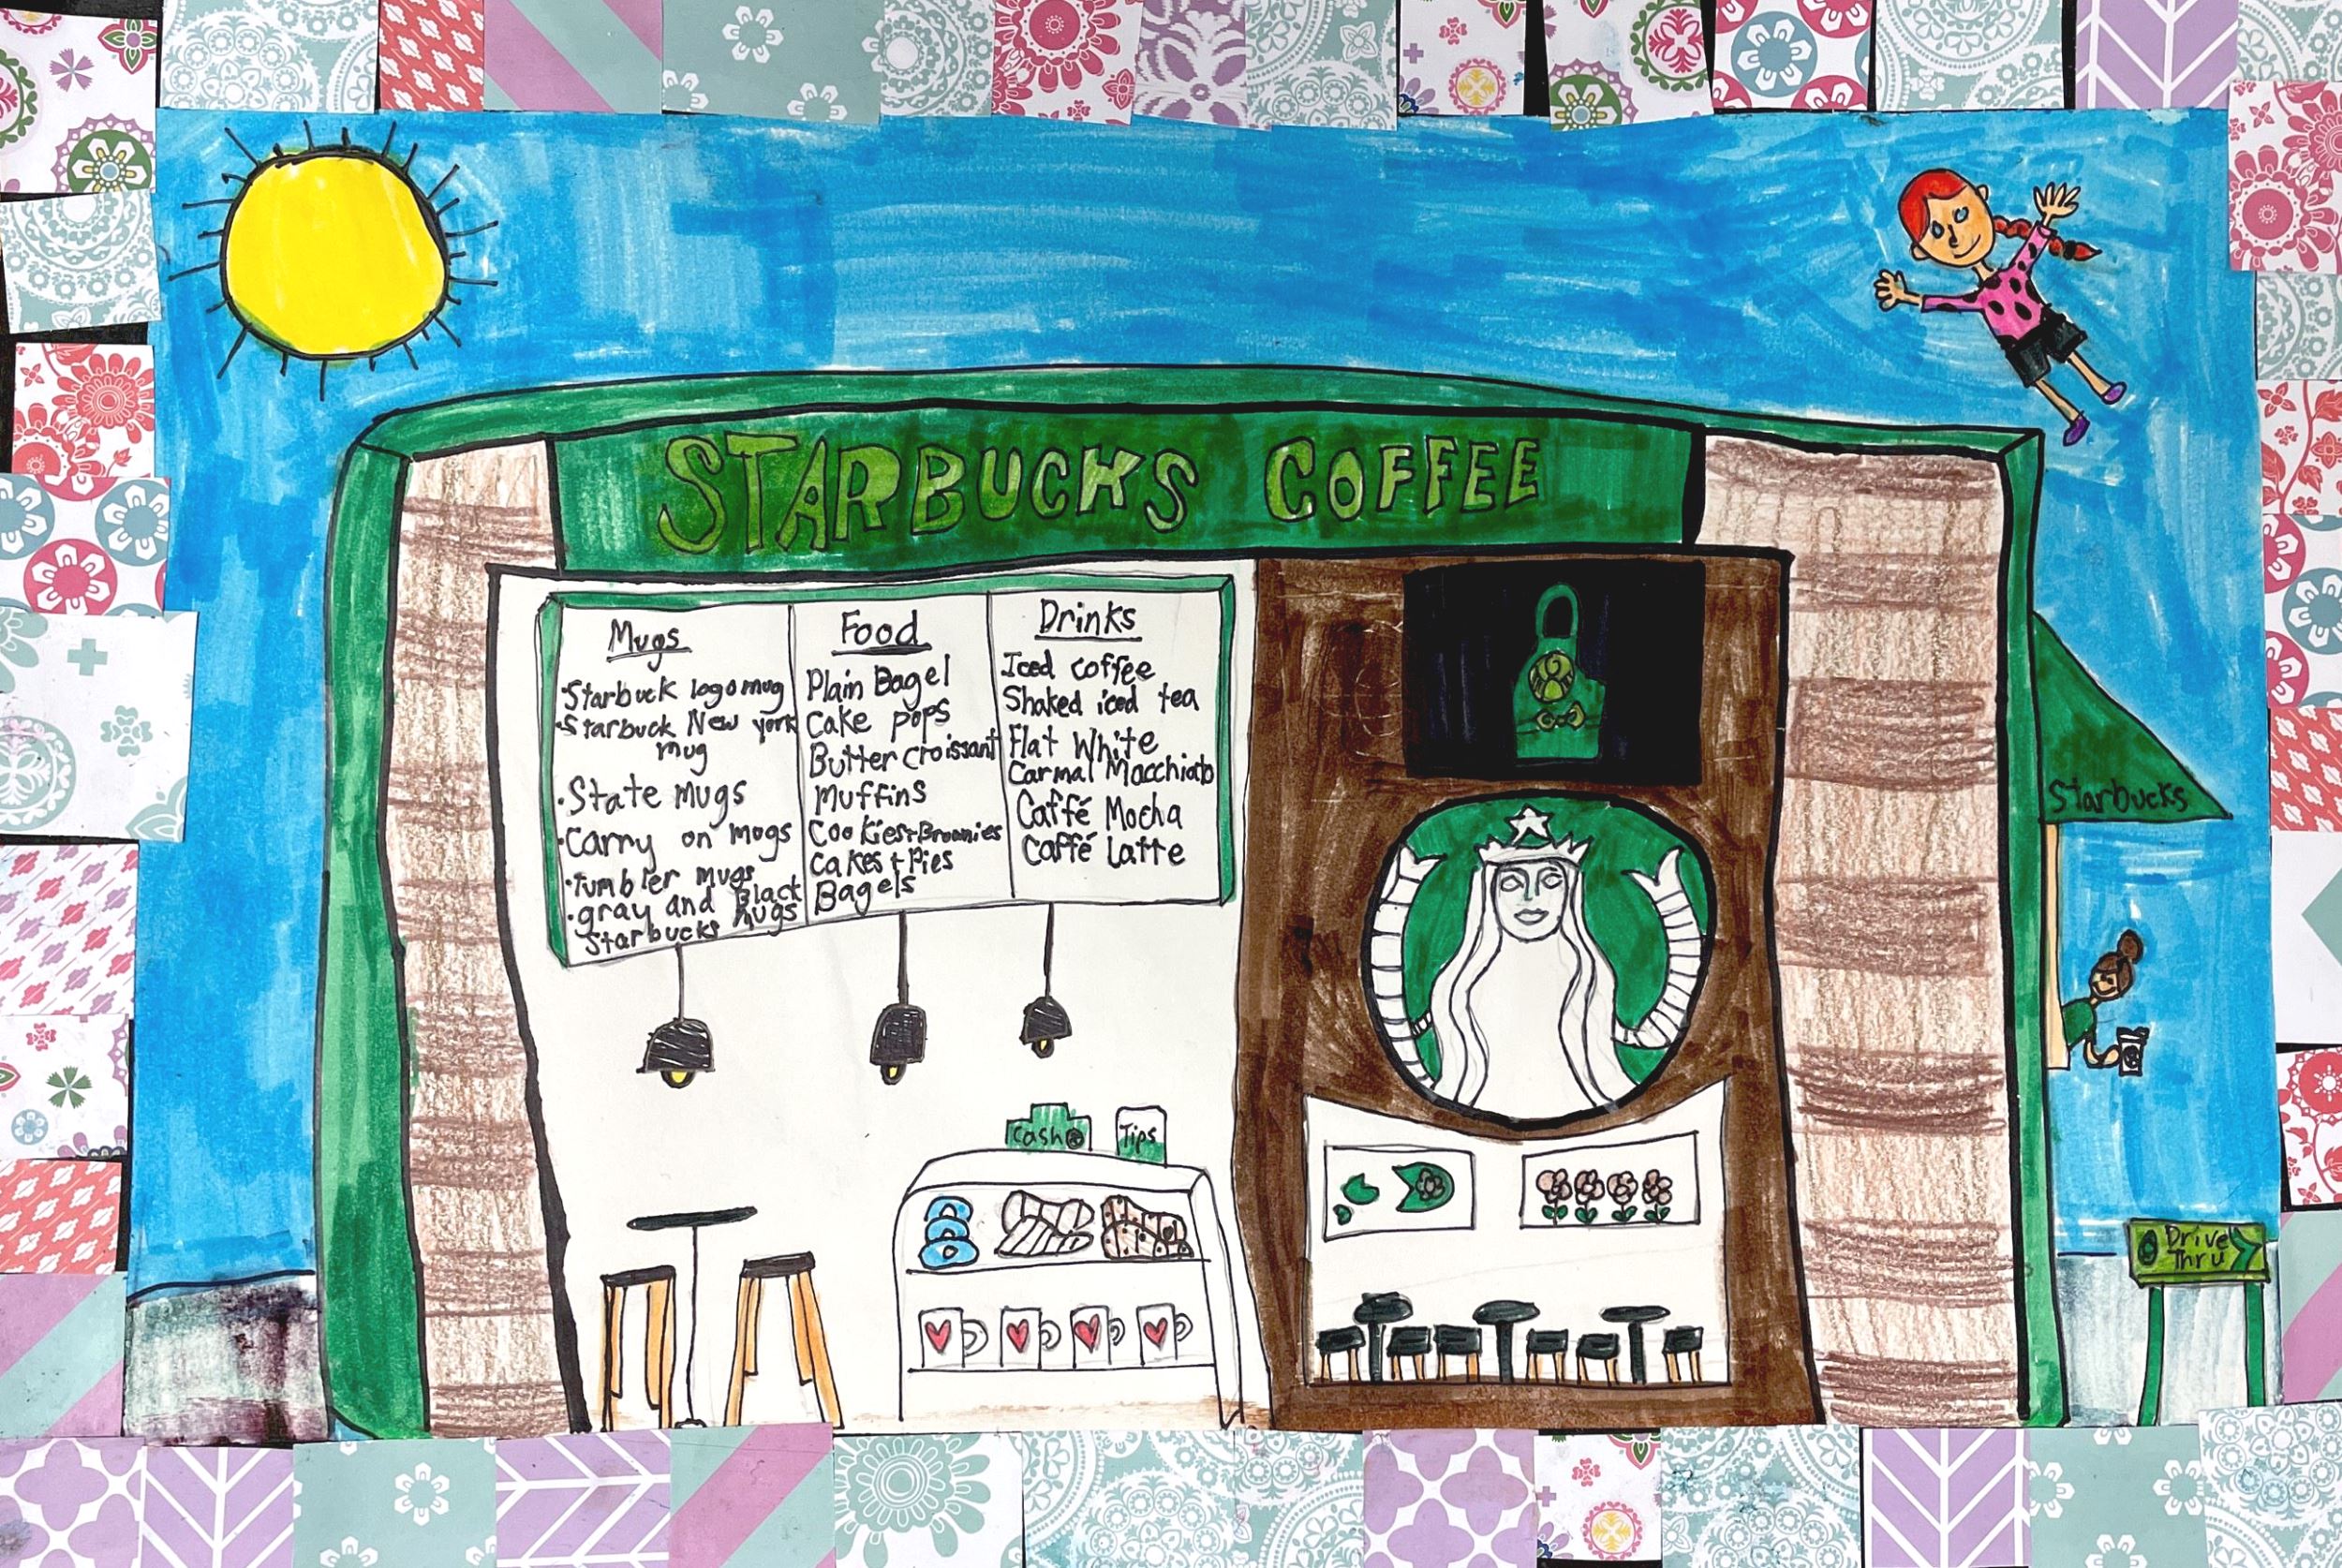 STARBUCKS COFFEE
Mugs
·Starbuck logo mug
·Starbuck New york
mug
·State mugs
·Carry on mogs
·Tumbler mugs
·gray and Black
Starbucks Mugs
Food
Plain Bagel
Cake pops
Butter croissant
Muffins
Cookies+Brownies
Cakes + Pies
Bagels
Drinks
Iced coffee
Shaked iced tea
Flat White
Carmal Macchiato
Caffé Mocha
Caffé Latte
Starbucks
Cash
Tips
Drive
Thru